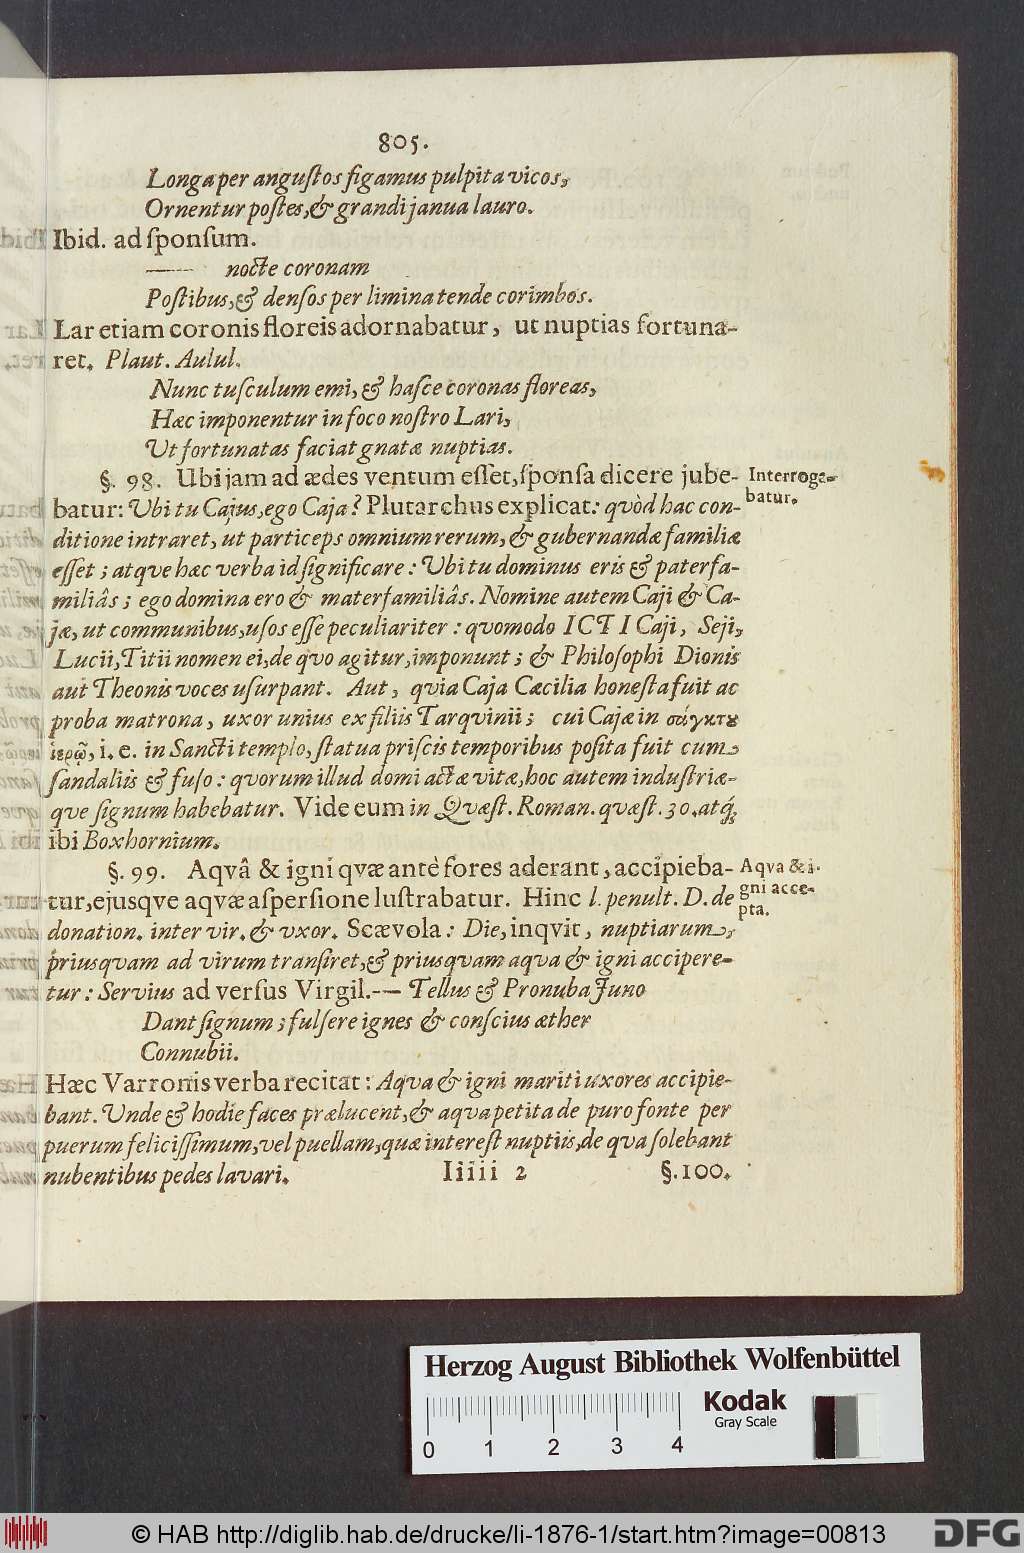 805.
Longa per anguſtos figamus pulpita vicos,
Ornentur poſtes, & grandi janua lauro.
Ibid. ad ſponſum.
—— nocte coronam
Poſtibus, & denſos per limina tende corimbos.
Lar etiam coronis floreis adornabatur, ut nuptias fortuna-
ret. Plaut. Aulul.
Nunc tuſculum emi, & haſce coronas floreas,
Hæc imponentur in foco noſtro Lari,
Ut fortunatas faciat gnatæ nuptias.
§. 98. Ubi jam ad ædes ventum eſſet, ſponſa dicere jube-
Interroga-
batur.
batur: Ubi tu Cajus, ego Caja? Plutarchus explicat: qvòd hac con-
ditione intraret, ut particeps omnium rerum, & gubernandæ familiæ
eſſet; atqve hæc verba id ſignificare: Ubi tu dominus eris & paterfa-
miliâs; ego domina ero & materfamiliâs. Nomine autem Caji & Ca-
jæ, ut communibus, uſos eſſe peculiariter: qvomodo ICTI Caji, Seji,
Lucii, Titii nomen ei, de qvo agitur, imponunt; & Philoſophi Dionis
aut Theonis voces uſurpant. Aut, qvia Caja Cæcilia honeſta fuit ac
proba matrona, uxor unius ex filiis Tarqvinii; cui Cajæ in σάγκτȣ
ἱερῷ, i. e. in Sancti templo, ſtatua priſcis temporibus poſita fuit cum
ſandaliis & fuſo: qvorum illud domi actæ vitæ, hoc autem induſtriæ-
qve ſignum habebatur. Vide eum in Qvæſt. Roman. qvæſt. 30. atq́;
ibi Boxhornium.
§. 99. Aqvâ & igni qvæ antè fores aderant, accipieba-
Aqva & i-
gni acce-
pta.
tur, ejusqve aqvæ aſperſione luſtrabatur. Hinc l. penult. D. de
donation. inter vir. & vxor. Scævola: Die, inqvit, nuptiarum,
priusqvam ad virum tranſiret, & priusqvam aqva & igni accipere-
tur: Servius ad verſus Virgil.-— Tellus & Pronuba Juno
Dant ſignum; fulſere ignes & conſcius æther
Connubii.
Hæc Varronis verba recitat: Aqva & igni mariti uxores accipie-
bant. Unde & hodie faces prælucent, & aqva petita de puro fonte per
puerum feliciſſimum, vel puellam, quæ intereſt nuptiis, de qva ſolebant
nubentibus pedes lavari.
Iiiii 2
§. 100.
Herzog August Bibliothek Wolfenbüttel
Kodak
Gray Scale
0 1 2 3 4
© HAB http://diglib.hab.de/drucke/li-1876-1/start.htm?image=00813
DFG